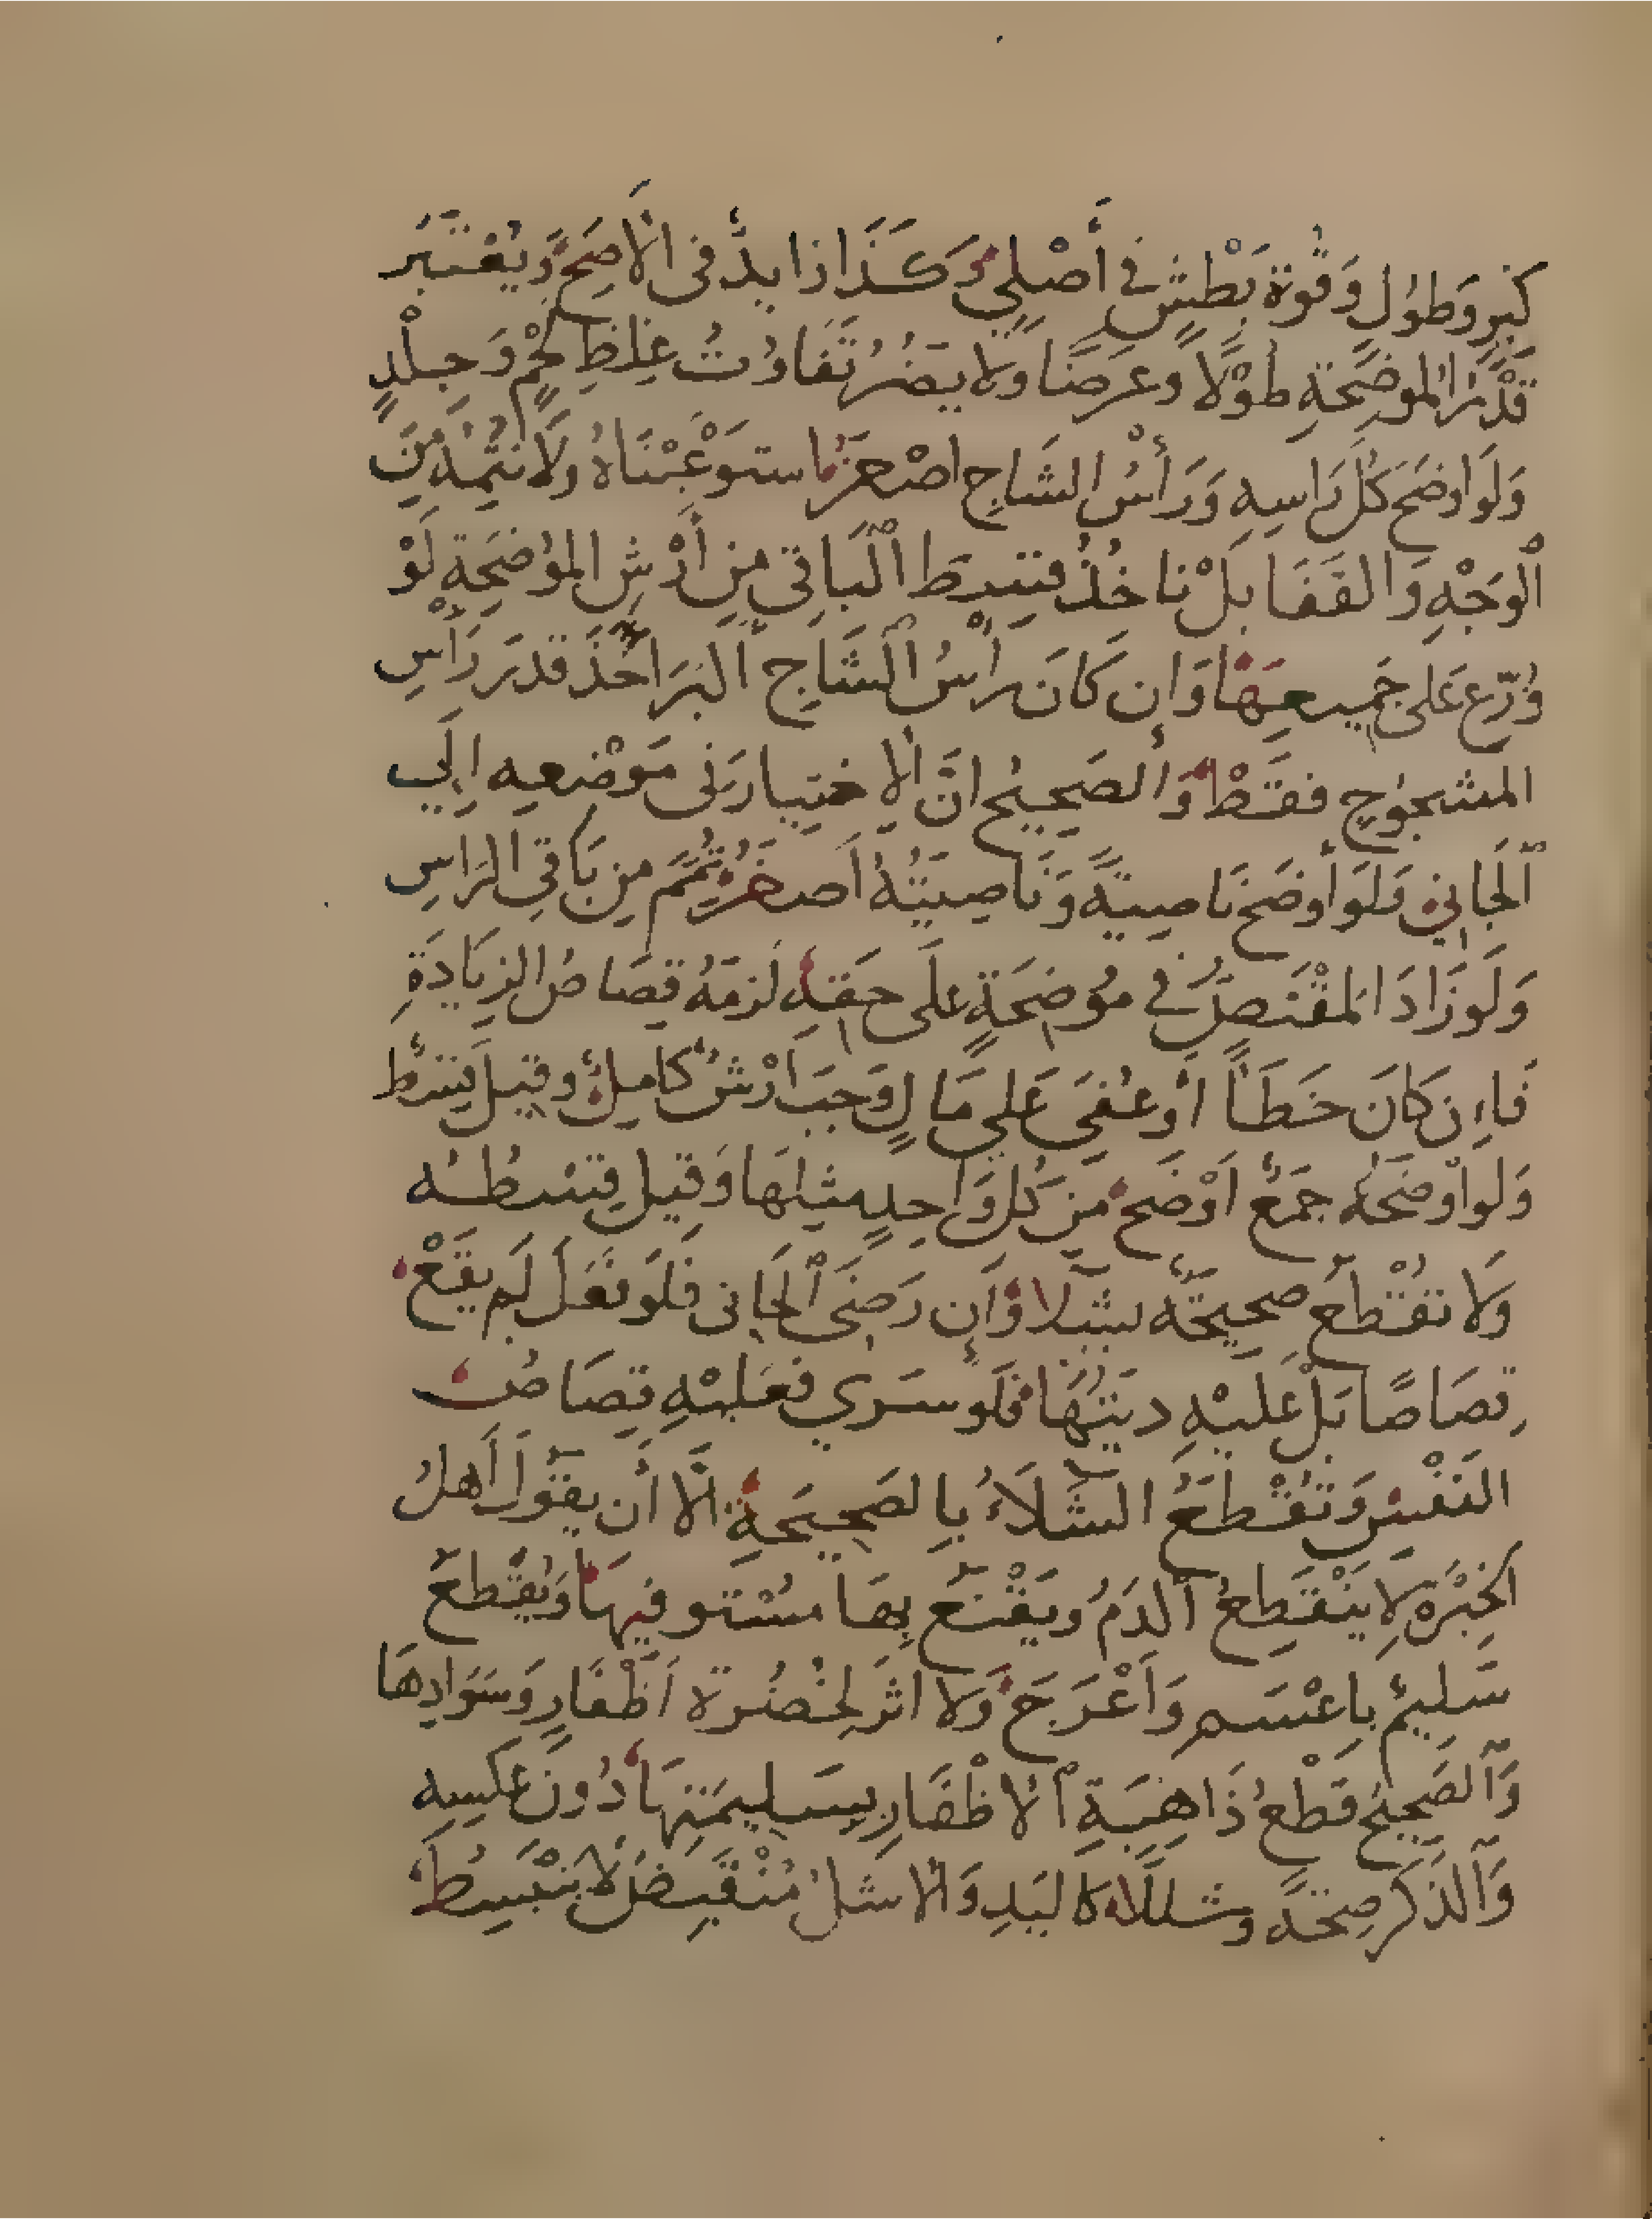 كبر وَطوُل وَقُوة بَطْشٍ في أَصْلِيٍّ وَكَذَا زايدٌ فى الأَصَحِّ وَيُعْتَبَر
قَدْرُ المُوضِحَةِ طُوْلًا وَعَرضًا وَلا يَضُرُ تَفَاوُتُ غِلَظِ لَحْمٍ وَجِلْدٍ
وَلَو اوضَح كُلَّ رَاسِهِ وَرَأْسُ الشَاجِ اصْغَرُ استوْعَبْنَاهُ وَلَا نُتِمُّهُ مِنَ
ٱلوَجْهِ وَالقَفَا بَلْ ناخُذُ قِسْطَ ٱلْبَاقي مِن أَرْشِ المُوضِحَةِ لَوْ
وُزِّعَ عَلى جَمِيعِهَا وَان كَانَ رَأْسُ ٱلشَاجِ أَكبَر أُخِذَ قدرَ رَأْسِ
المشجوُجِ فقَطْ وَٱلصَحِيحُ انَّ الاِختيار فى مَوْضعِه الَي
ٱلجَانِي وَلَوَ أوضَحَ نَاصِيَةً وَنَاصِيَتُهُ أَصغَرُ تُمِّمَ مِن بَاقِي الرَاسِ
وَلَو زَادَ المُقْتَصُّ في مُوضِحَةٍ عَلَى حَقِّهِ لَزمَهُ قِصَاصُ الزِيَادَةِ
فَاءِن كَانَ خَطَأً أَوْ عُفِيَ عَلى مَالٍ وَجَبَ أَرْشٌ كَامِلٌ وقيلَ قِسْطٌ
وَلَو أَوضَحَهُ جَمْعٌ أَوْضَحَ مِن كُلِّ وَاحِدٍ مثلَهَا وَقيلَ قِسْطُه
وَلا تُقْطَعُ صحيحَةٌ بِشَلَّا وَإِن رَضيَ ٱلجَانى فَلَو فَعَلَ لَم يقَعْ
قِصَاصًا بَلْ عَلَيْهِ دِيَتُهَا فَلَو سَرَي فعَلَيْهِ قِصَاصُ
النَفْسِ وَتُقْطَعُ الشَلَّاءُ بِالصَحِيحَةِ الَّا أَن يقُولَ أَهلُ
الخِبْرَةِ لا يَنْقَطِعُ ٱلدَمُ وَيقْنَعُ بِهَا مُسْتَوفيهَا وَيُقْطَعُ
سَلِيمٌ بِاعْسَم وَأَعْرَجَ وَلا اثَرَ لِخُضْرَة أَظْفَارٍ وَسَوَادِهَا
وَٱلصَحِيحُ قَطْعُ ذَاهِبَةِ ٱلاَظْفَارِ بِسَلِيمَتِهَا دُونَ عَكسِهِ
وَٱلذَكَر صِحَّةً وَشللًا كَاليَدِ وَالأَشَلُّ مُنْقَبِضٌ لَا يَنْبَسِطُ